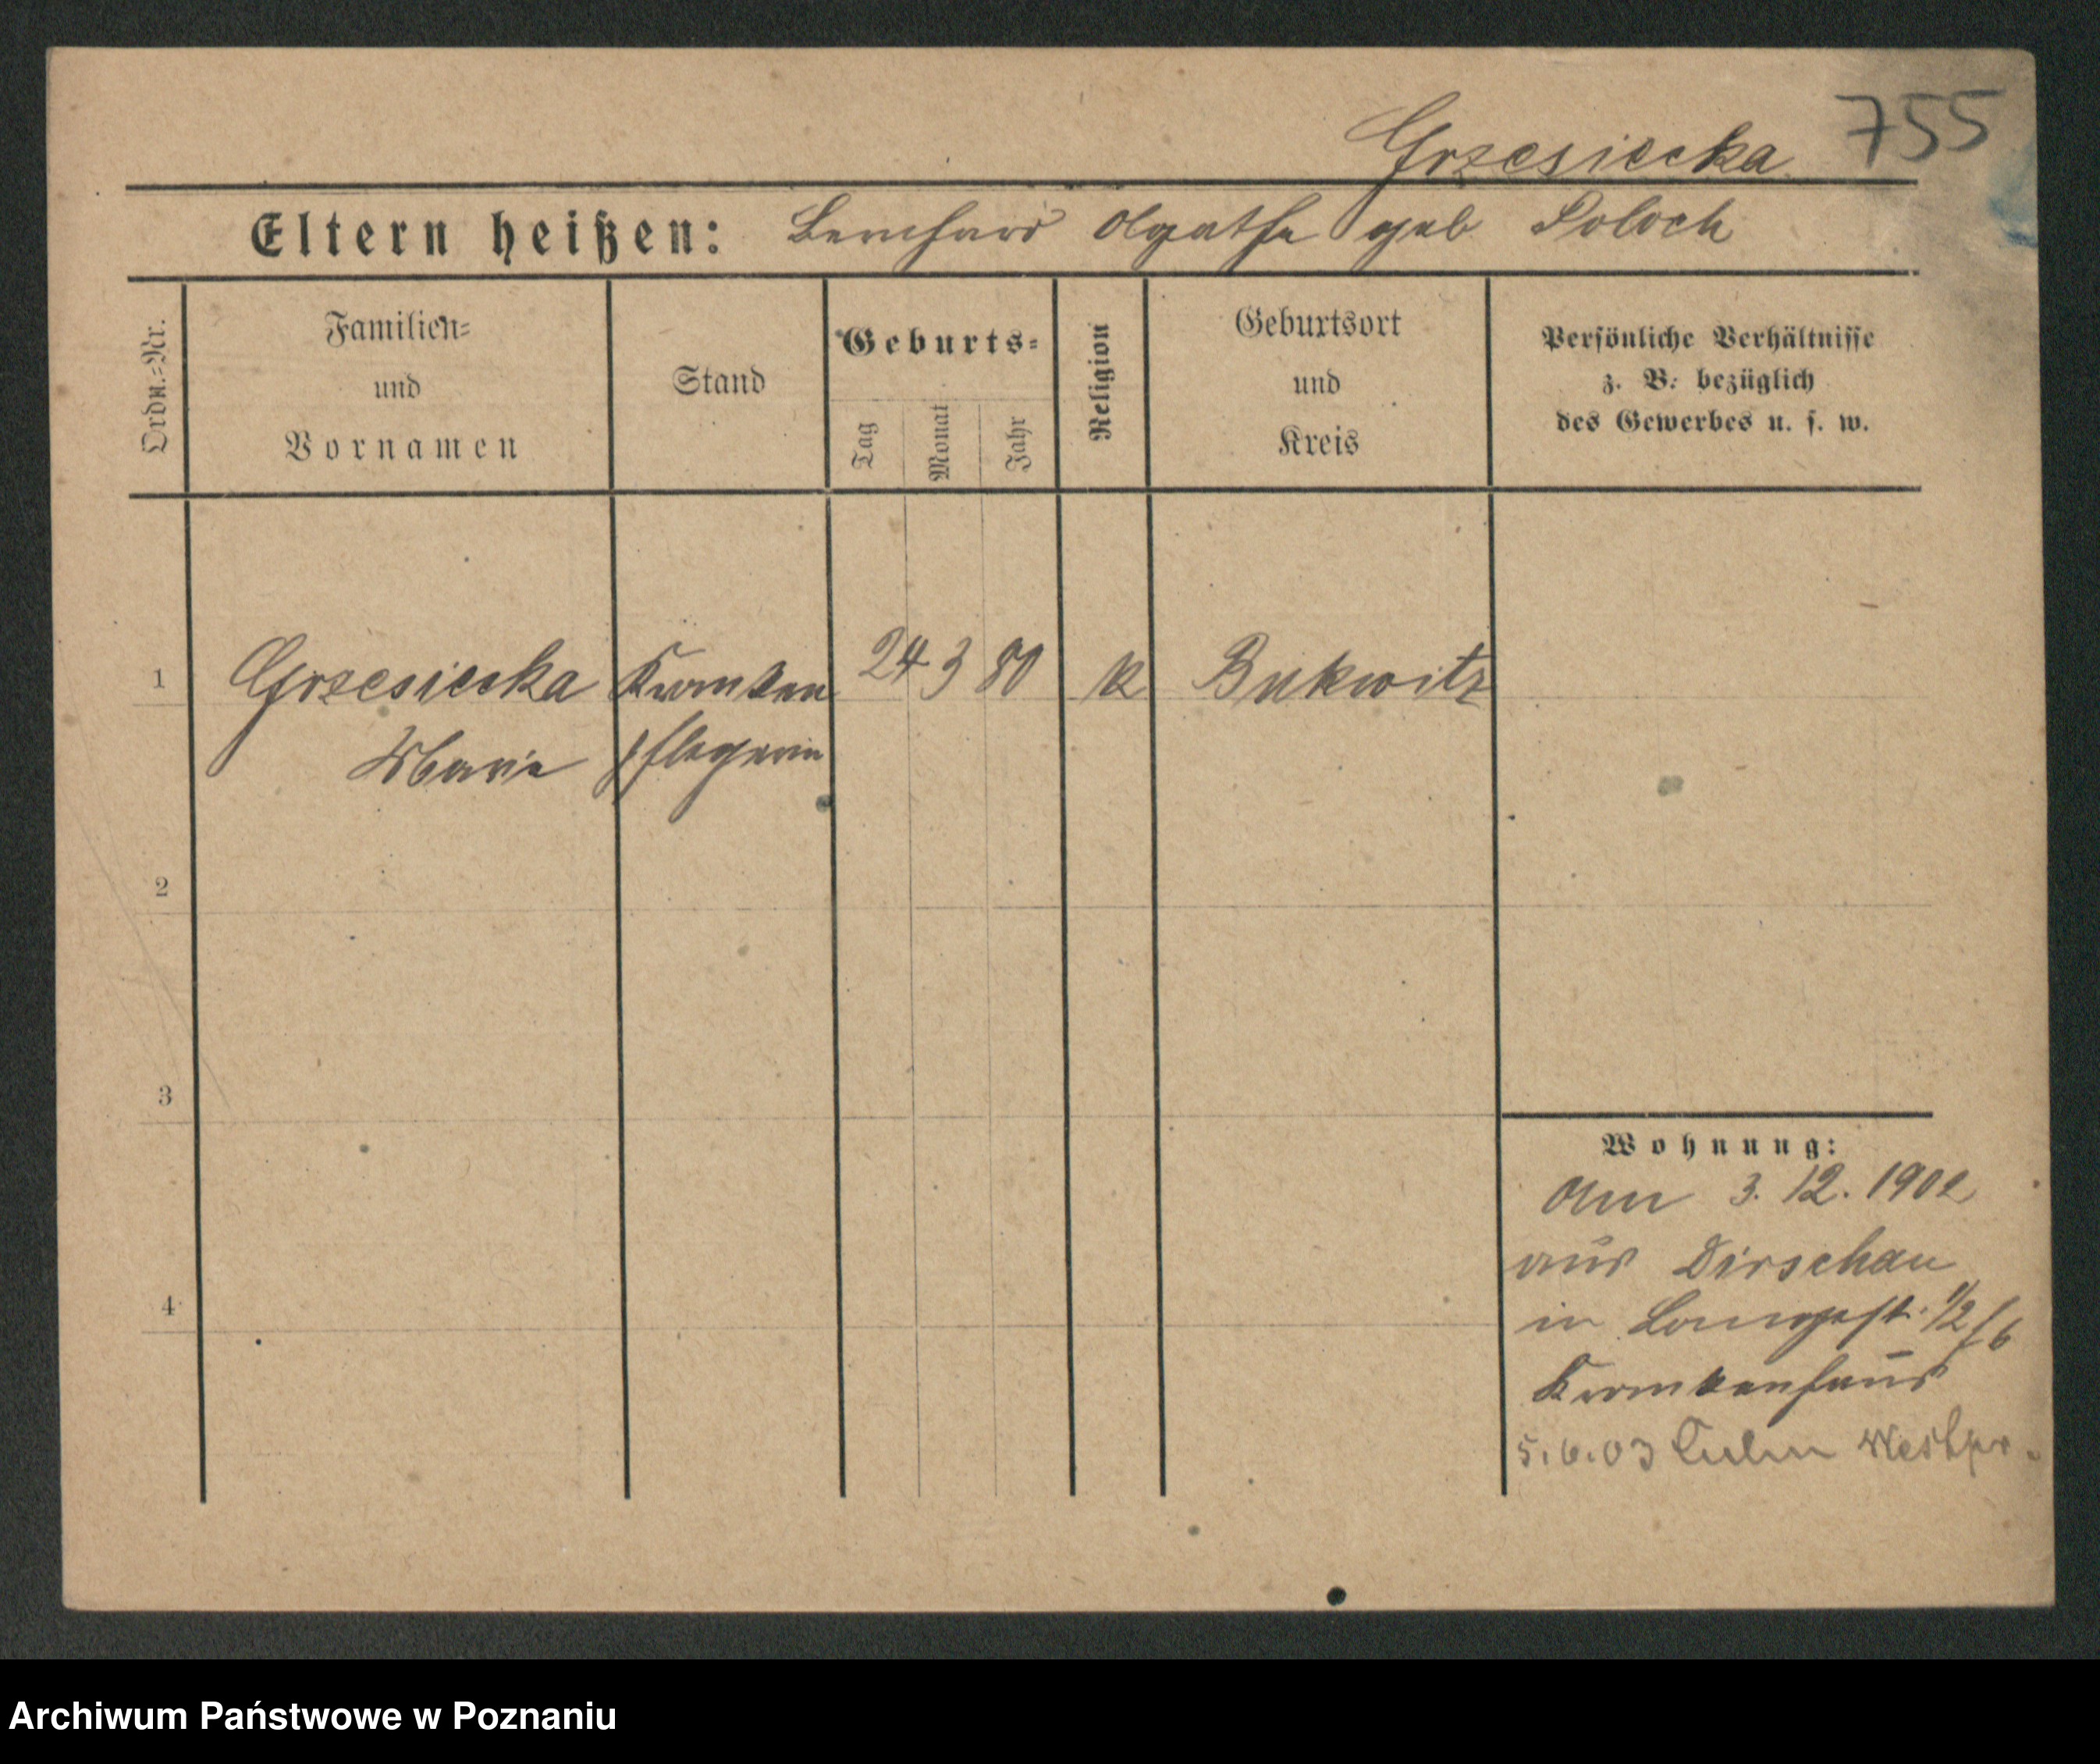 755
Grzesiecka
Eltern heißen: Bernhard Agathe geb Soloch
Ordn.=Nr.
Familien=
und
Vornamen
Stand
Geburts=
Tag
Monat
Jahr
Religion
Geburtsort
und
Kreis
Persönliche Verhältnisse
z. B. bezüglich
des Gewerbes u. s. w.
1 Grzesiecka Kranken 24 3 80 k Bukwitz
Marie pflegerin
2
3
4
Wohnung:
Am 3. 12. 1902
aus Dirschau
in Langest. 1/2
Krankenhaus
5.6.03 Culm Westpr.
Archiwum Państwowe w Poznaniu